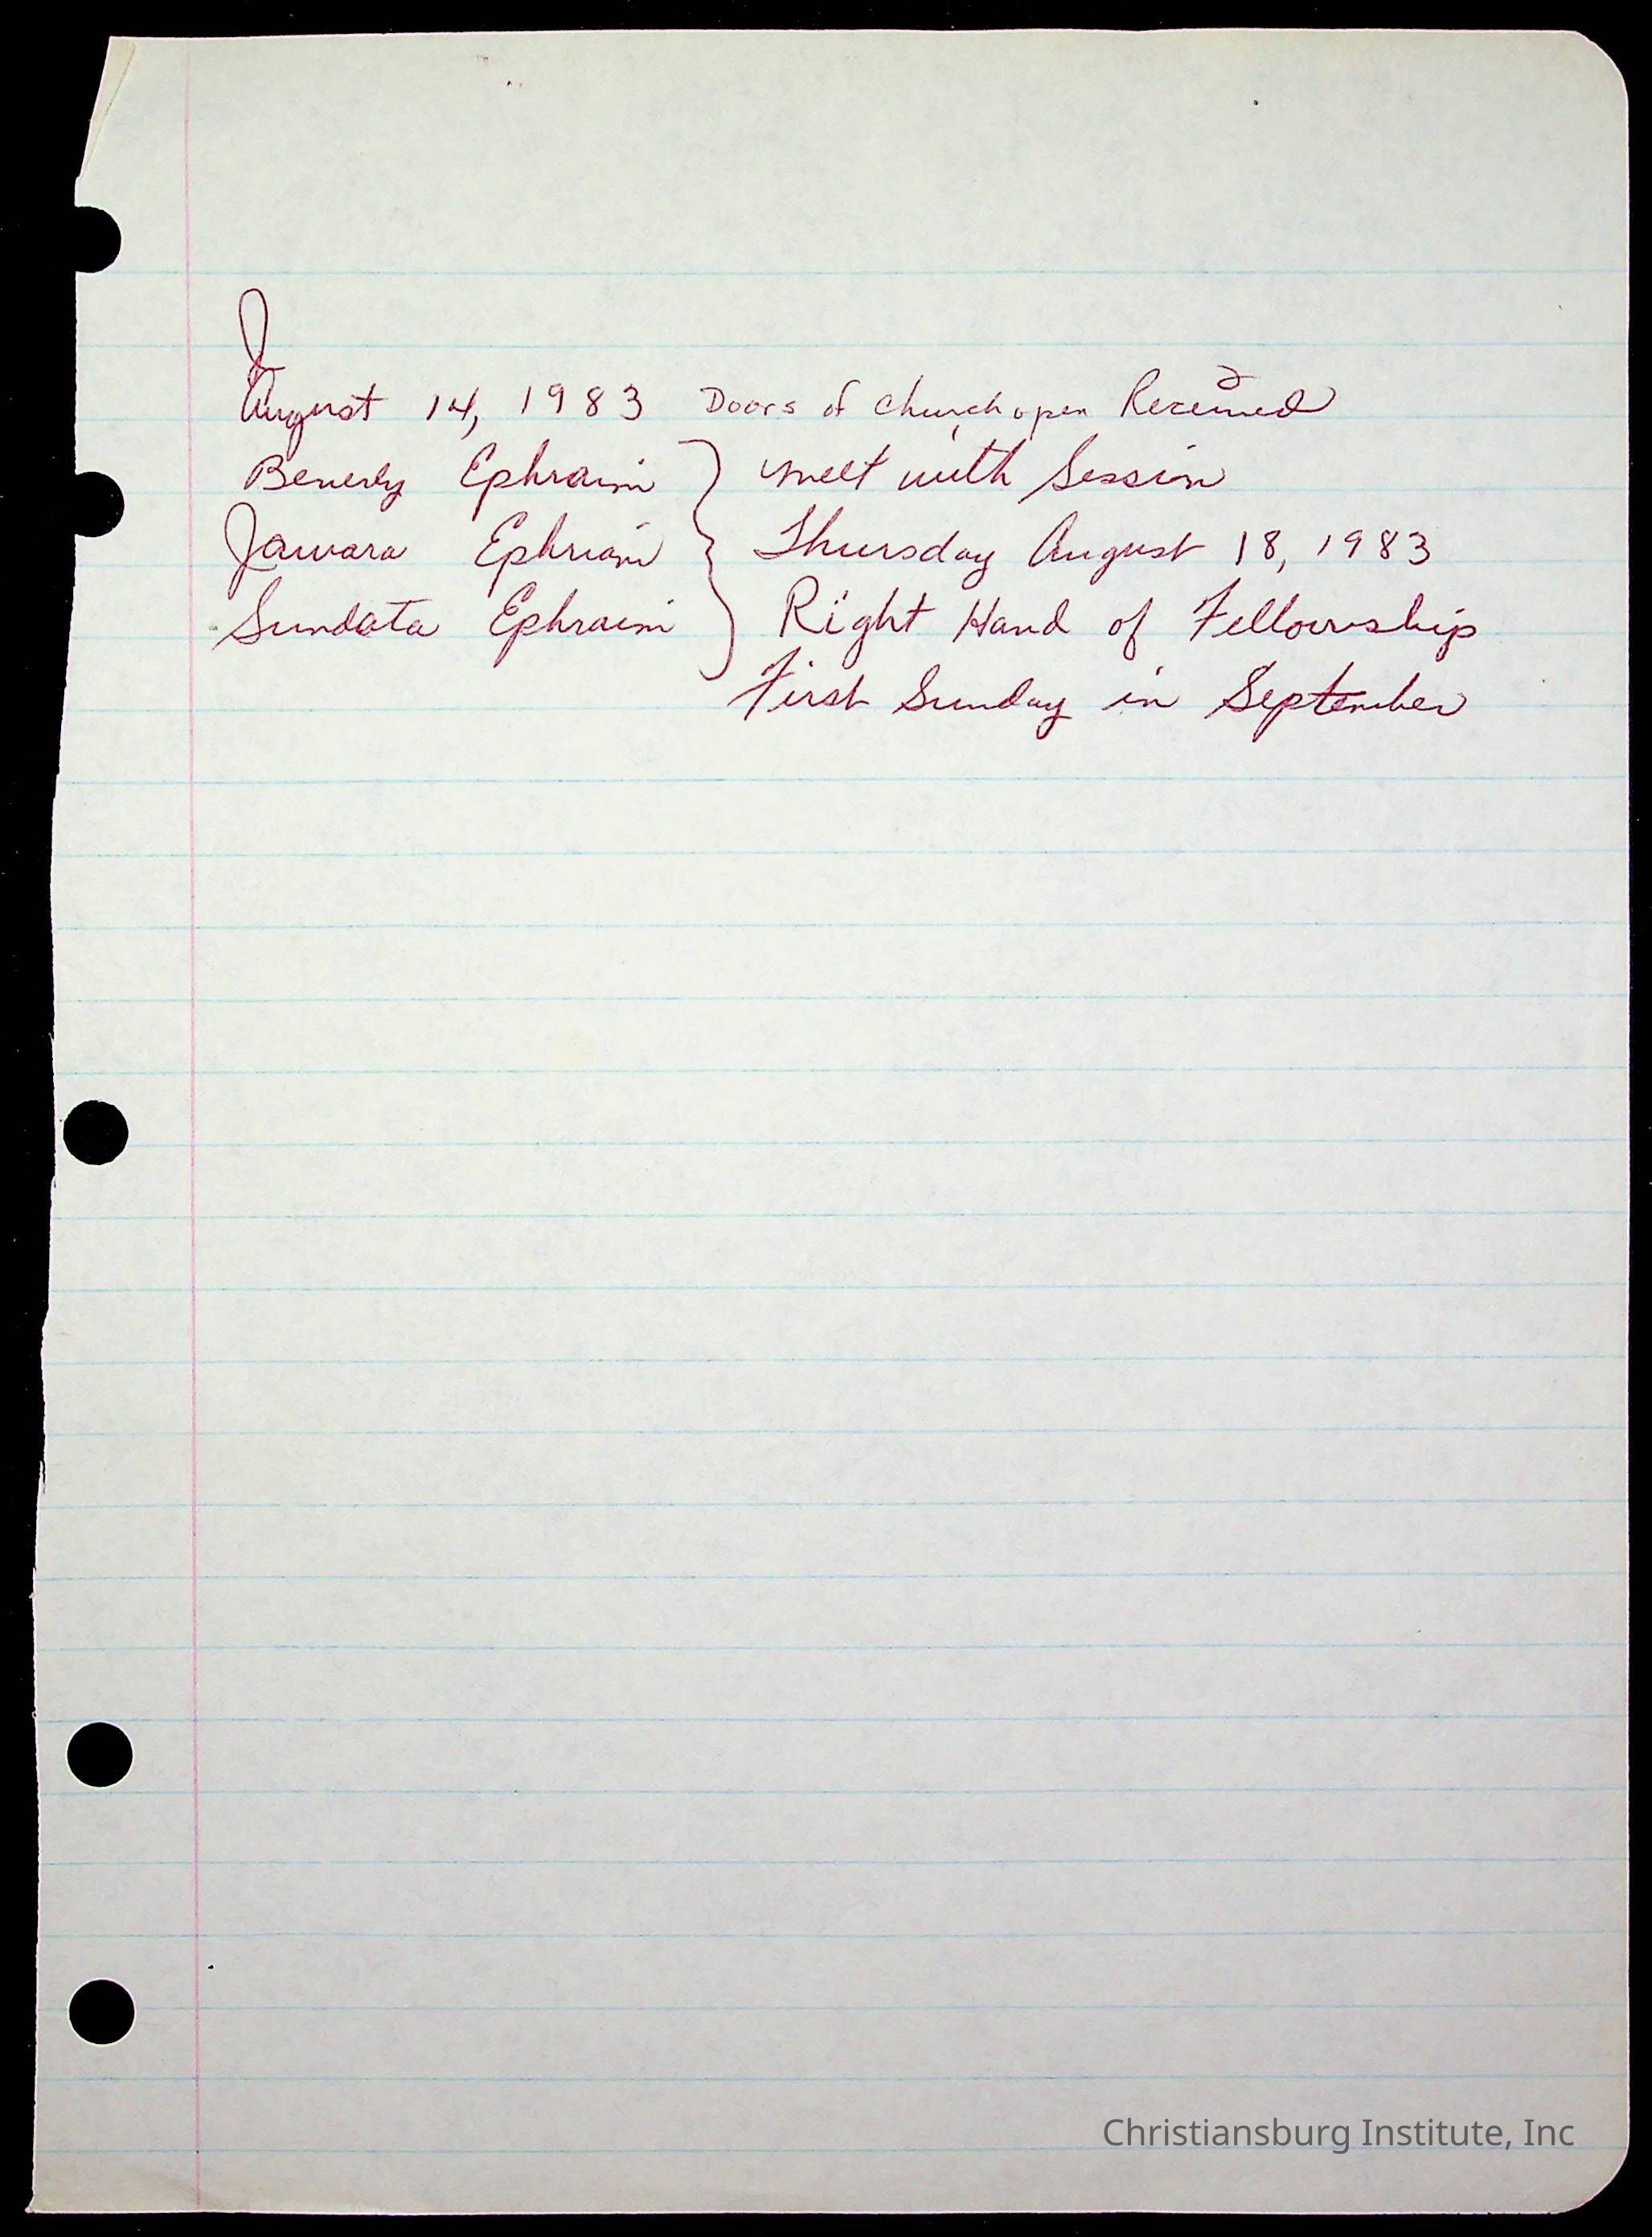 August 14, 1983 Doors of Church open Received
Beverly Ephraim } meet with Session
Jawara Ephriam } Thursday August 18, 1983
Sundata Ephraim } Right Hand of Fellowship
First Sunday in September
Christiansburg Institute, Inc